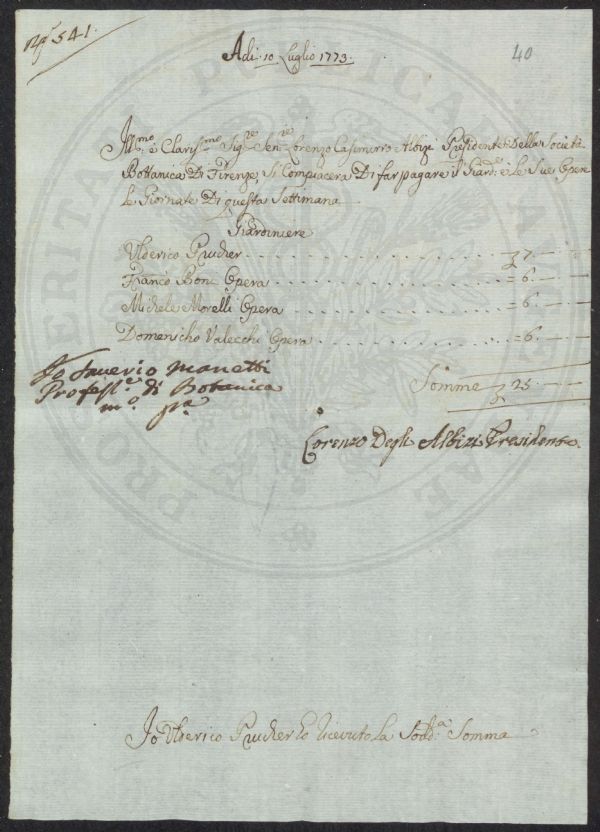 N.° 541.
40
Adi: 10 Luglio 1773.
Ill:mo e Claris:mo Sig:re Sen:re Lorenzo Casimirro Albizi Presidente Della Società
Bottanica Di Firenze, Si Compiacera Di far pagare il Giard:re e Le Sue Opere
Le Giornate Di questa Settimana
Giardiniere
Ulderico Prucher . . . . . . . . . . . . 7. — —
Franco Boni Opera . . . . . . . . . . = 6. — —
Michele Morelli Opera . . . . . . . . . = 6. — —
Domenicho Valecchi Opera . . . . . . . = 6. — —
Somme 25. — —
Io Saverio Manetti
Profess:e di Botanica
m:o p:a
Lorenzo Degli Albizi Presidente
Io Ulderico Prucher ho ricevuto La Sodd:a Somma
PROSPERITATI PUBLICAE AUGENDAE